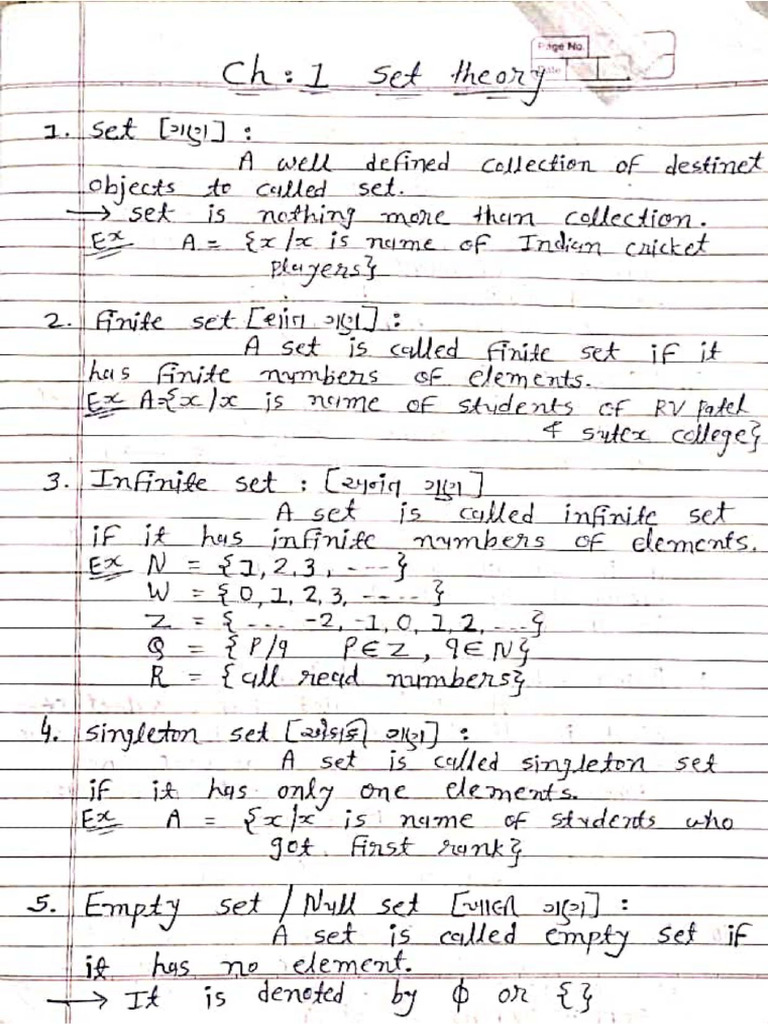 Page No.
Date
Ch : 1 set theory
1. set [ગણ] :
A well defined collection of destinct
objects to called set.
→ set is nothing more than collection.
Ex A = {x/x is name of Indian cricket
players}
2. finite set [સાંત ગણ] :
A set is called finite set if it
has finite numbers of elements.
Ex A={x/x is name of students of RV Patel
& sutex college}
3. Infinite set : [અનંત ગણ]
A set is called infinite set
if it has infinite numbers of elements.
Ex N = {1, 2, 3, ----}
W = {0, 1, 2, 3, -----}
Z = {... -2, -1, 0, 1, 2, ...}
Q = {P/q P∈Z, q∈N}
R = {all read numbers}
4. singleton set [એકાકી ગણ] :
A set is called singleton set
if it has only one elements.
Ex A = {x/x is name of students who
got first rank}
5. Empty set / Null set [ખાલી ગણ] :
A set is called empty set if
it has no element.
→ It is denoted by ϕ or {}